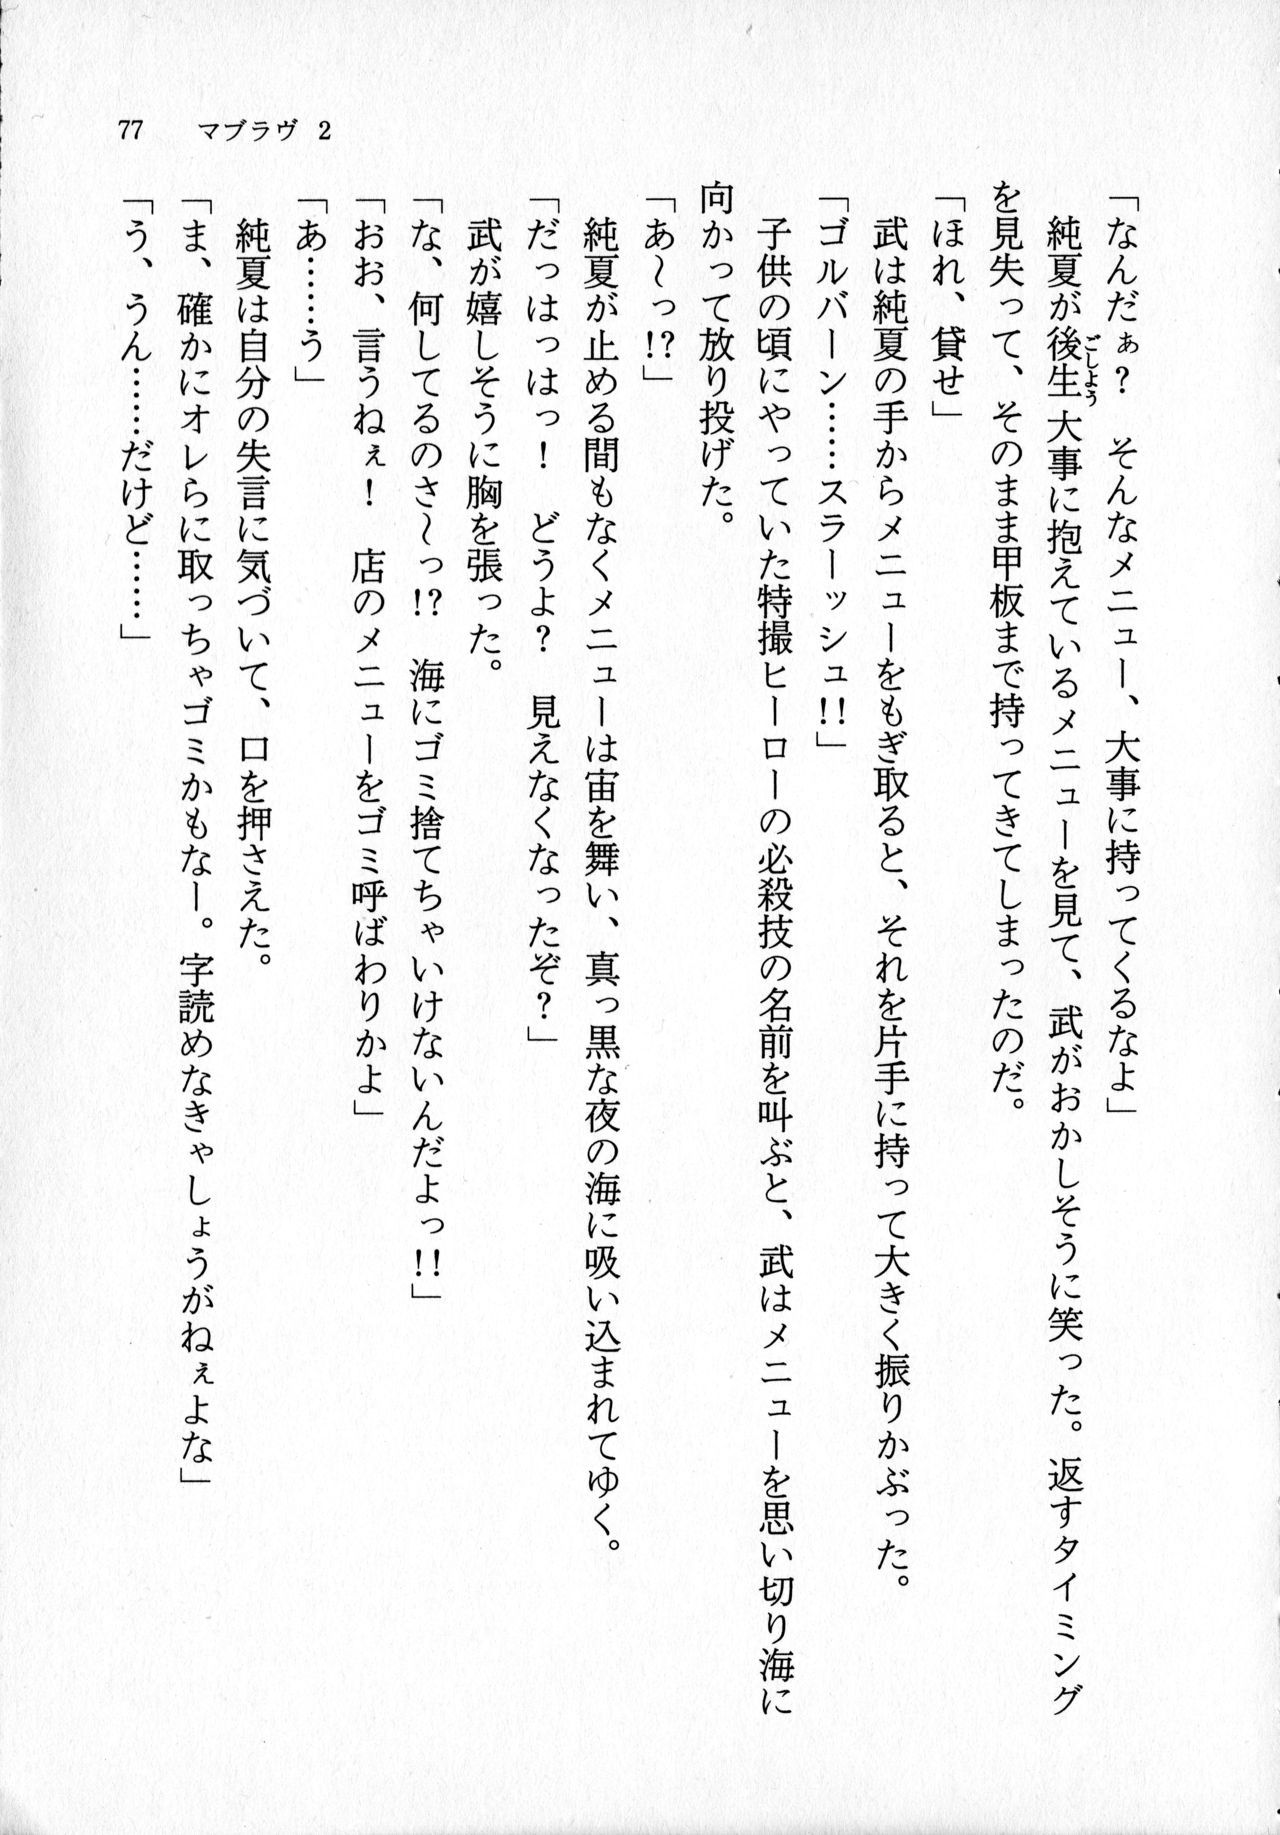 77　マブラヴ 2
「なんだぁ？　そんなメニュー、大事に持ってくるなよ」
　純夏が後生大事に抱えているメニューを見て、武がおかしそうに笑った。返すタイミング
ごしょう
を見失って、そのまま甲板まで持ってきてしまったのだ。
「ほれ、貸せ」
　武は純夏の手からメニューをもぎ取ると、それを片手に持って大きく振りかぶった。
「ゴルバーン……スラーッシュ!!」
　子供の頃にやっていた特撮ヒーローの必殺技の名前を叫ぶと、武はメニューを思い切り海に
向かって放り投げた。
「あ〜っ!?」
　純夏が止める間もなくメニューは宙を舞い、真っ黒な夜の海に吸い込まれてゆく。
「だっはっはっ！　どうよ？　見えなくなったぞ？」
　武が嬉しそうに胸を張った。
「な、何してるのさ〜っ!?　海にゴミ捨てちゃいけないんだよっ!!」
「おお、言うねぇ！　店のメニューをゴミ呼ばわりかよ」
「あ……う」
　純夏は自分の失言に気づいて、口を押さえた。
「ま、確かにオレらに取っちゃゴミかもなー。字読めなきゃしょうがねぇよな」
「う、うん……だけど……」